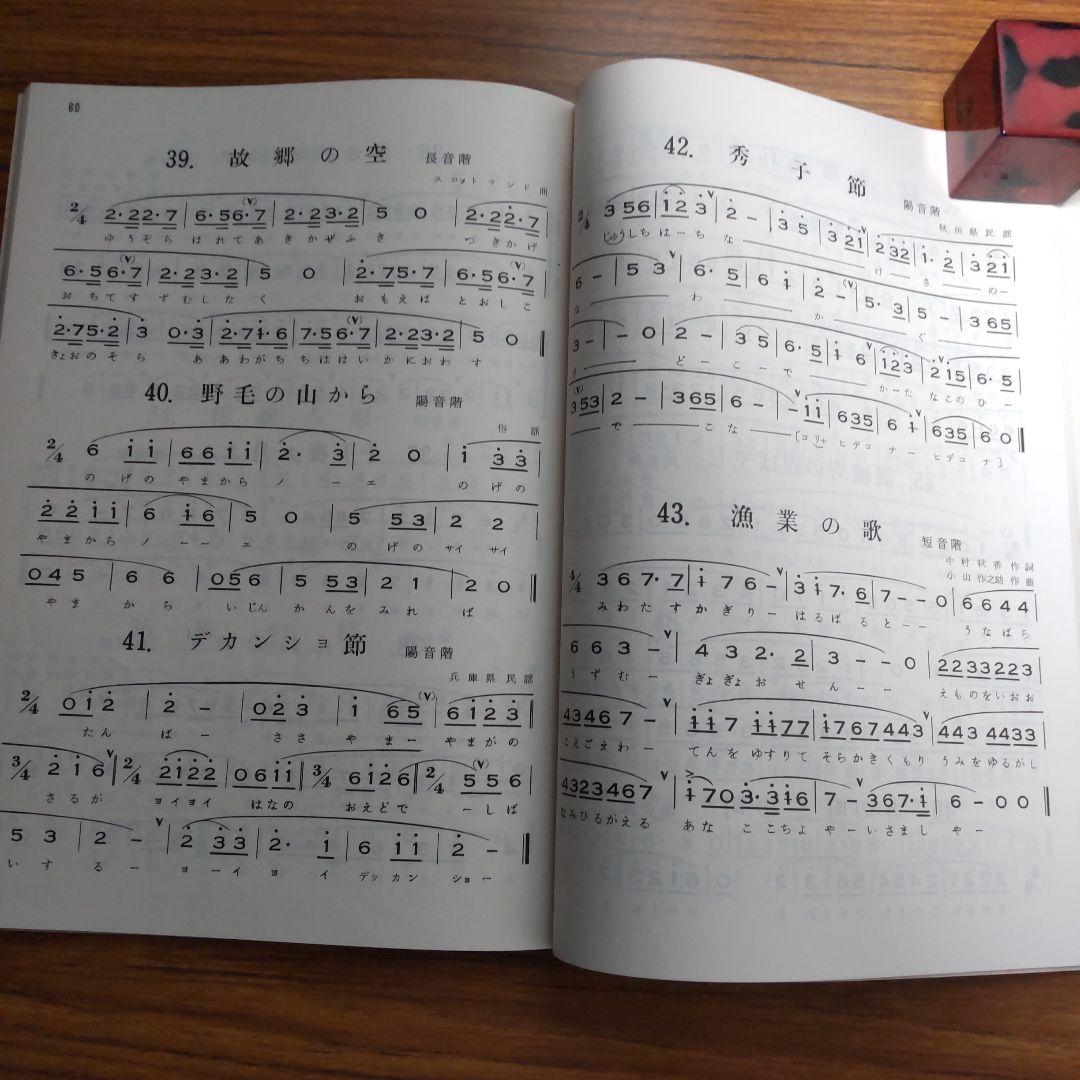 60
39. 故郷の空 長音階
スコットランド曲
2/4 2·22·7 | 6·56·7 | 2·23·2 | 5 0 | 2·22·7
ゆうぞら はれてあ きかぜふ き つきかげ
6·56·7 | 2·23·2 | 5 0 | 2·75·7 | 6·56·7
おちてす ずむしな く おもえば とおしこ
2·75·2 | 3 0·3 | 2·71·6 | 7·56·7 | 2·23·2 | 5 0
きょおのそら ああわがち ちははい かにおわ す
40. 野毛の山から 陽音階
俗謡
2/4 6 1 1 | 6 6 1 1 | 2· 3 | 2 0 | 1 3 3
のげの やまから ノーエ のげの
2 2 1 1 | 6 1 6 | 5 0 | 5 5 3 | 2 2
やまから ノーーエ のげの サイ サイ
0 4 5 | 6 6 | 0 5 6 | 5 5 3 | 5 6 | 5 0
やま から いじん かんを みれ ば
41. デカンショ節 陽音階
兵庫県民謡
2/4 0 1 2 | 2 - | 0 2 3 | 1 6 5 (V) | 6 1 2 3
たん ばー ささ やまー やまがの
3/4 2 1 6 V 2/4 2 1 2 2 | 0 6 1 1 | 3/4 6 1 2 6 V 2/4 5 5 6
さるが ヨイヨイ はなの おえどで ーしば
5 3 | 2 - V 2 3 3 | 2· 1 | 6 1 1 | 2 -
いす るー ヨーイ ヨイ デッカン ショー
42. 秀子節 陽音階
秋田県民謡
2/4 3 5 6 | 1 2 3 V 2 - | 3 5 | 3 2 1 V 2 3 2 | 1· 2 | 3 2 1
じゅうしち はーちな け さのー
6 - | 5 3 V 6· 5 | 6 1 | 2 - (V) 5· 3 | 5 - | 3 6 5
な わ か ぐ し
3 - | - 0 | 2 - | 3 5 | 6·5 | 1 6 V 1 2 3 | 2 1 5 | 6· 5
どこーで かーた なこの ひー
3 5 3 | 2 - | 3 6 5 | 6 - V - 1 1 | 6 3 5 | 6· 1 V 6 3 5 | 6 0
で こな 〔コリャ ヒデコ ナー ヒデコ ナ〕
43. 漁業の歌 短音階
中村秋香作詞
小山作之助作曲
4/4 3 6 7· 7 | 1 7 6 - V 3 1 7· 6 | 7 - - 0 | 6 6 4 4
みわたす かぎりー はるばる とーー うなばら
6 6 3 - V 4 3 2· 2 | 3 - - 0 | 2 2 3 3 2 2 3
うずむー ぎょぎょお せんーー えものをいおお
4 3 4 6 7 - V 1 1 7 | 1 1 7 7 | 1 7 6 7 4 4 3 V 4 4 3 4 4 3 3
こえごえわー てんを ゆすりて そらかきくもり うみをゆるがし
4 3 2 3 4 6 7 V 1 7 0 3· 3 1 6 | 7 - V 3 6 7· 1 | 6 - 0 0
なみひるがえる あな ここちよ やー いさまし やー